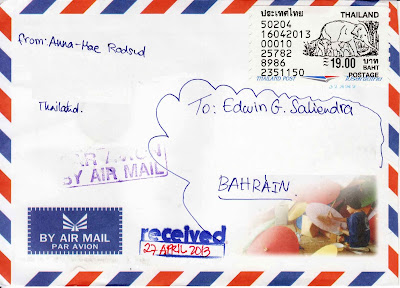 From: Anna-Mae Rodsud
Thailand.
ประเทศไทย
50204
16042013
00010
25782
8986
2351150
THAILAND
19.00 บาท
BAHT
POSTAGE
THAILAND POST
To: Edwin G. Saliendra
BAHRAIN
PAR AVION
BY AIR MAIL
BY AIR MAIL
PAR AVION
received
27 APRIL 2013